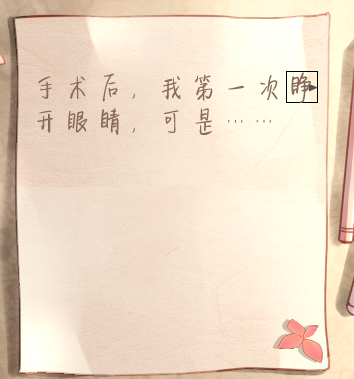 手术后，我第一次睁
开眼睛，可是……